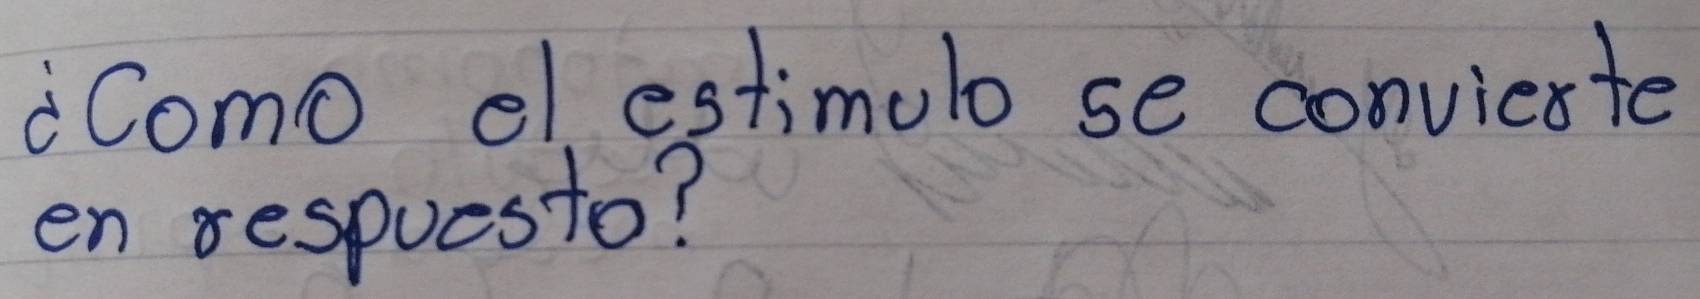 ¿Como el estimulo se convierte
en respuesto?